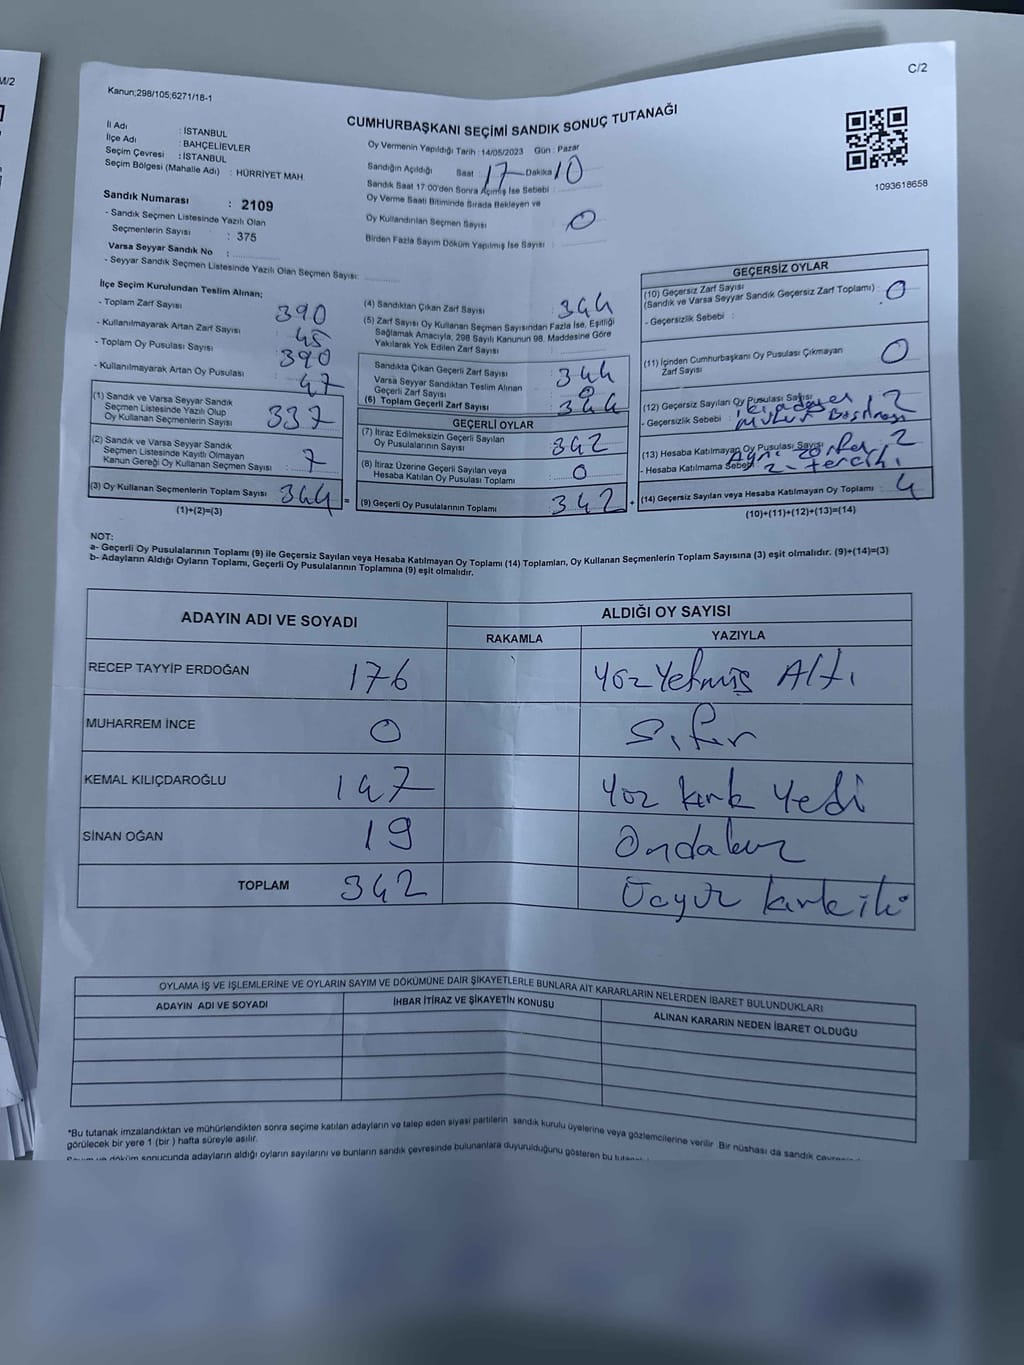 M/2
C/2
Kanun;298/105;6271/18-1
CUMHURBAŞKANI SEÇİMİ SANDIK SONUÇ TUTANAĞI
İl Adı : İSTANBUL
İlçe Adı : BAHÇELİEVLER
Seçim Çevresi : İSTANBUL
Seçim Bölgesi (Mahalle Adı) : HÜRRİYET MAH.
Oy Vermenin Yapıldığı Tarih : 14/05/2023 Gün : Pazar
Sandığın Açıldığı Saat : 17 Dakika : 10
Sandık Saat 17:00'den Sonra Açılmış İse Sebebi :
Oy Verme Saati Bitiminde Sırada Bekleyen ve
Oy Kullandırılan Seçmen Sayısı : 0
Birden Fazla Sayım Döküm Yapılmış İse Sayısı :
1093618658
Sandık Numarası : 2109
- Sandık Seçmen Listesinde Yazılı Olan
Seçmenlerin Sayısı : 375
Varsa Seyyar Sandık No :
- Seyyar Sandık Seçmen Listesinde Yazılı Olan Seçmen Sayısı:
İlçe Seçim Kurulundan Teslim Alınan;
- Toplam Zarf Sayısı 390
- Kullanılmayarak Artan Zarf Sayısı 45
- Toplam Oy Pusulası Sayısı 390
- Kullanılmayarak Artan Oy Pusulası 47
(1) Sandık ve Varsa Seyyar Sandık
Seçmen Listesinde Yazılı Olup
Oy Kullanan Seçmenlerin Sayısı 337
(2) Sandık ve Varsa Seyyar Sandık
Seçmen Listesinde Kayıtlı Olmayan
Kanun Gereği Oy Kullanan Seçmen Sayısı : 7
(3) Oy Kullanan Seçmenlerin Toplam Sayısı 344 =
(1)+(2)=(3)
(4) Sandıktan Çıkan Zarf Sayısı : 344
(5) Zarf Sayısı Oy Kullanan Seçmen Sayısından Fazla İse, Eşitliği
Sağlamak Amacıyla, 298 Sayılı Kanunun 98. Maddesine Göre
Yakılarak Yok Edilen Zarf Sayısı :
Sandıkta Çıkan Geçerli Zarf Sayısı : 344
Varsa Seyyar Sandıktan Teslim Alınan
Geçerli Zarf Sayısı : 0
(6) Toplam Geçerli Zarf Sayısı : 344
GEÇERLİ OYLAR
(7) İtiraz Edilmeksizin Geçerli Sayılan
Oy Pusulalarının Sayısı : 342
(8) İtiraz Üzerine Geçerli Sayılan veya
Hesaba Katılan Oy Pusulası Toplamı : 0
(9) Geçerli Oy Pusulalarının Toplamı : 342 +
GEÇERSİZ OYLAR
(10) Geçersiz Zarf Sayısı
(Sandık ve Varsa Seyyar Sandık Geçersiz Zarf Toplamı) : 0
- Geçersizlik Sebebi :
(11) İçinden Cumhurbaşkanı Oy Pusulası Çıkmayan
Zarf Sayısı 0
(12) Geçersiz Sayılan Oy Pusulası Sayısı : 2
- Geçersizlik Sebebi : iki adaya mühür Basılması
(13) Hesaba Katılmayan Oy Pusulası Sayısı 2
- Hesaba Katılmama Sebebi Aynı zarfta 2- tercih
(14) Geçersiz Sayılan veya Hesaba Katılmayan Oy Toplamı : 4
(10)+(11)+(12)+(13)=(14)
NOT:
a- Geçerli Oy Pusulalarının Toplamı (9) ile Geçersiz Sayılan veya Hesaba Katılmayan Oy Toplamı (14) Toplamları, Oy Kullanan Seçmenlerin Toplam Sayısına (3) eşit olmalıdır. (9)+(14)=(3)
b- Adayların Aldığı Oyların Toplamı, Geçerli Oy Pusulalarının Toplamına (9) eşit olmalıdır.
ADAYIN ADI VE SOYADI ALDIĞI OY SAYISI
RAKAMLA YAZIYLA
RECEP TAYYİP ERDOĞAN 176 Yüz Yetmiş Altı
MUHARREM İNCE 0 Sıfır
KEMAL KILIÇDAROĞLU 147 Yüz kırk Yedi
SİNAN OĞAN 19 Ondokuz
TOPLAM 342 Üçyüz kırkiki
OYLAMA İŞ VE İŞLEMLERİNE VE OYLARIN SAYIM VE DÖKÜMÜNE DAİR ŞİKAYETLERLE BUNLARA AİT KARARLARIN NELERDEN İBARET BULUNDUKLARI
ADAYIN ADI VE SOYADI İHBAR İTİRAZ VE ŞİKAYETİN KONUSU ALINAN KARARIN NEDEN İBARET OLDUĞU
*Bu tutanak imzalandıktan ve mühürlendikten sonra seçime katılan adayların ve talep eden siyasi partilerin sandık kurulu üyelerine veya gözlemcilerine verilir. Bir nüshası da sandık
görülecek bir yere 1 (bir ) hafta süreyle asılır.
döküm sonucunda adayların aldığı oyların sayılarını ve bunların sandık çevresinde bulunanlara duyurulduğunu gösteren bu